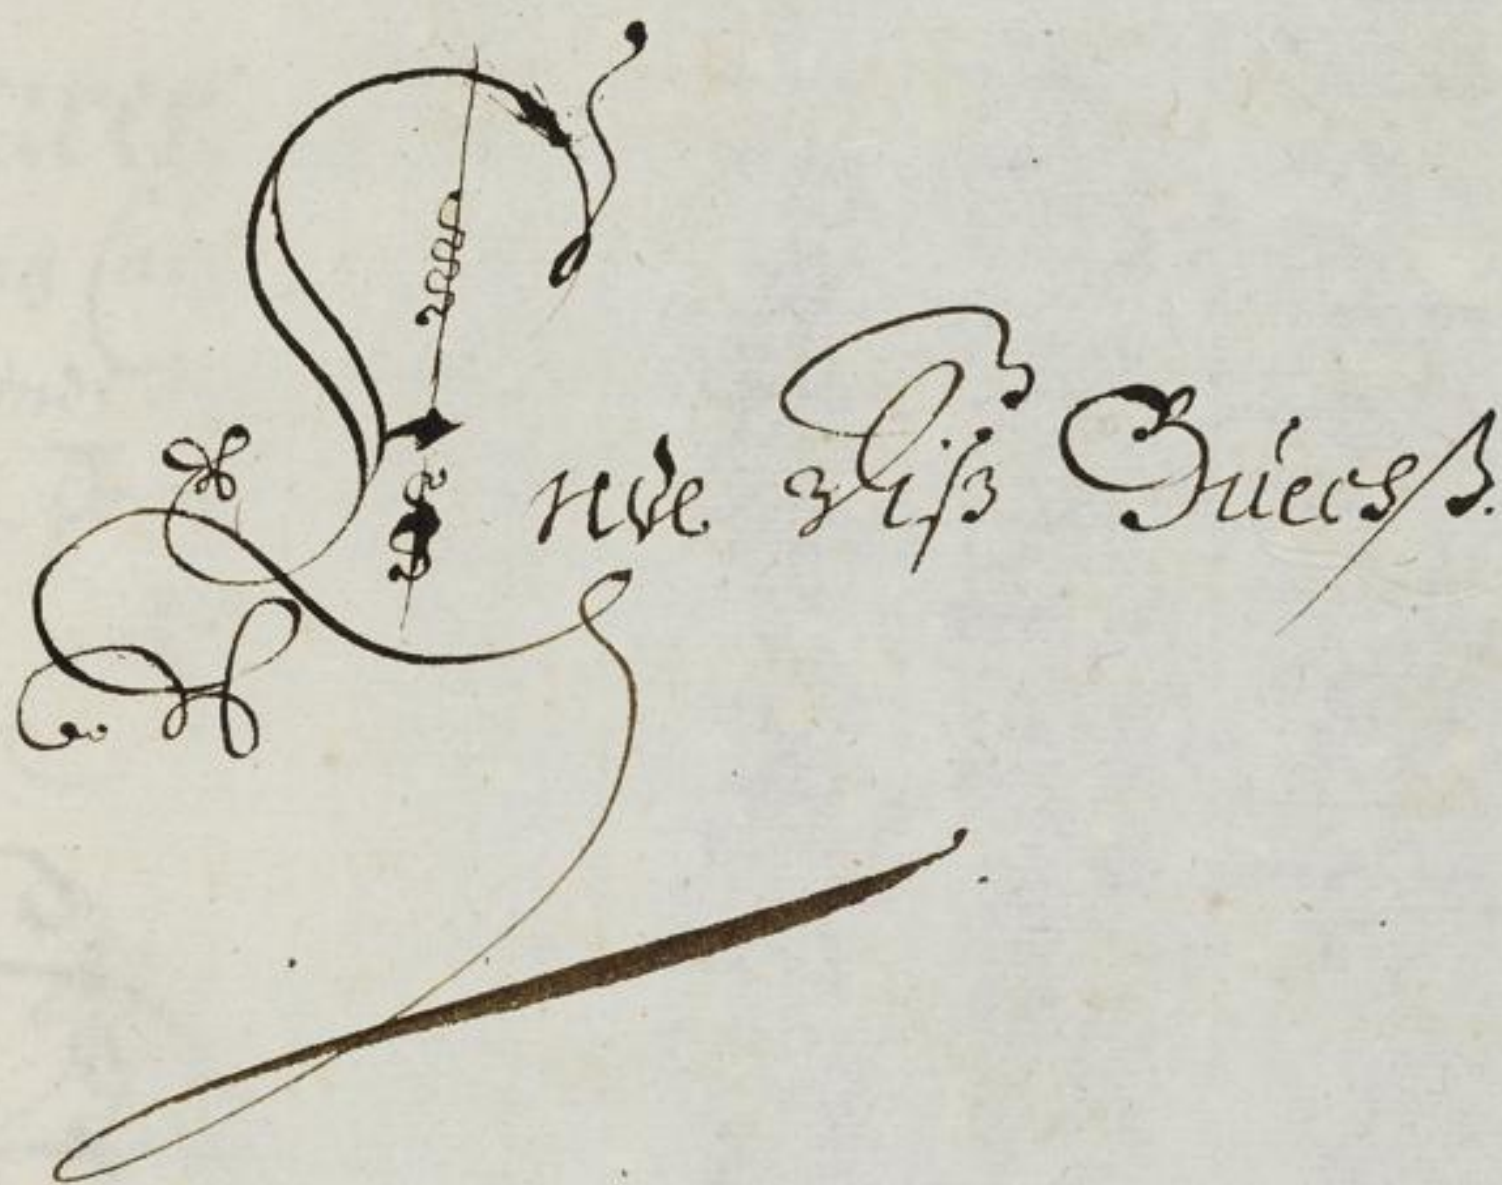 Ende diß Buechß.